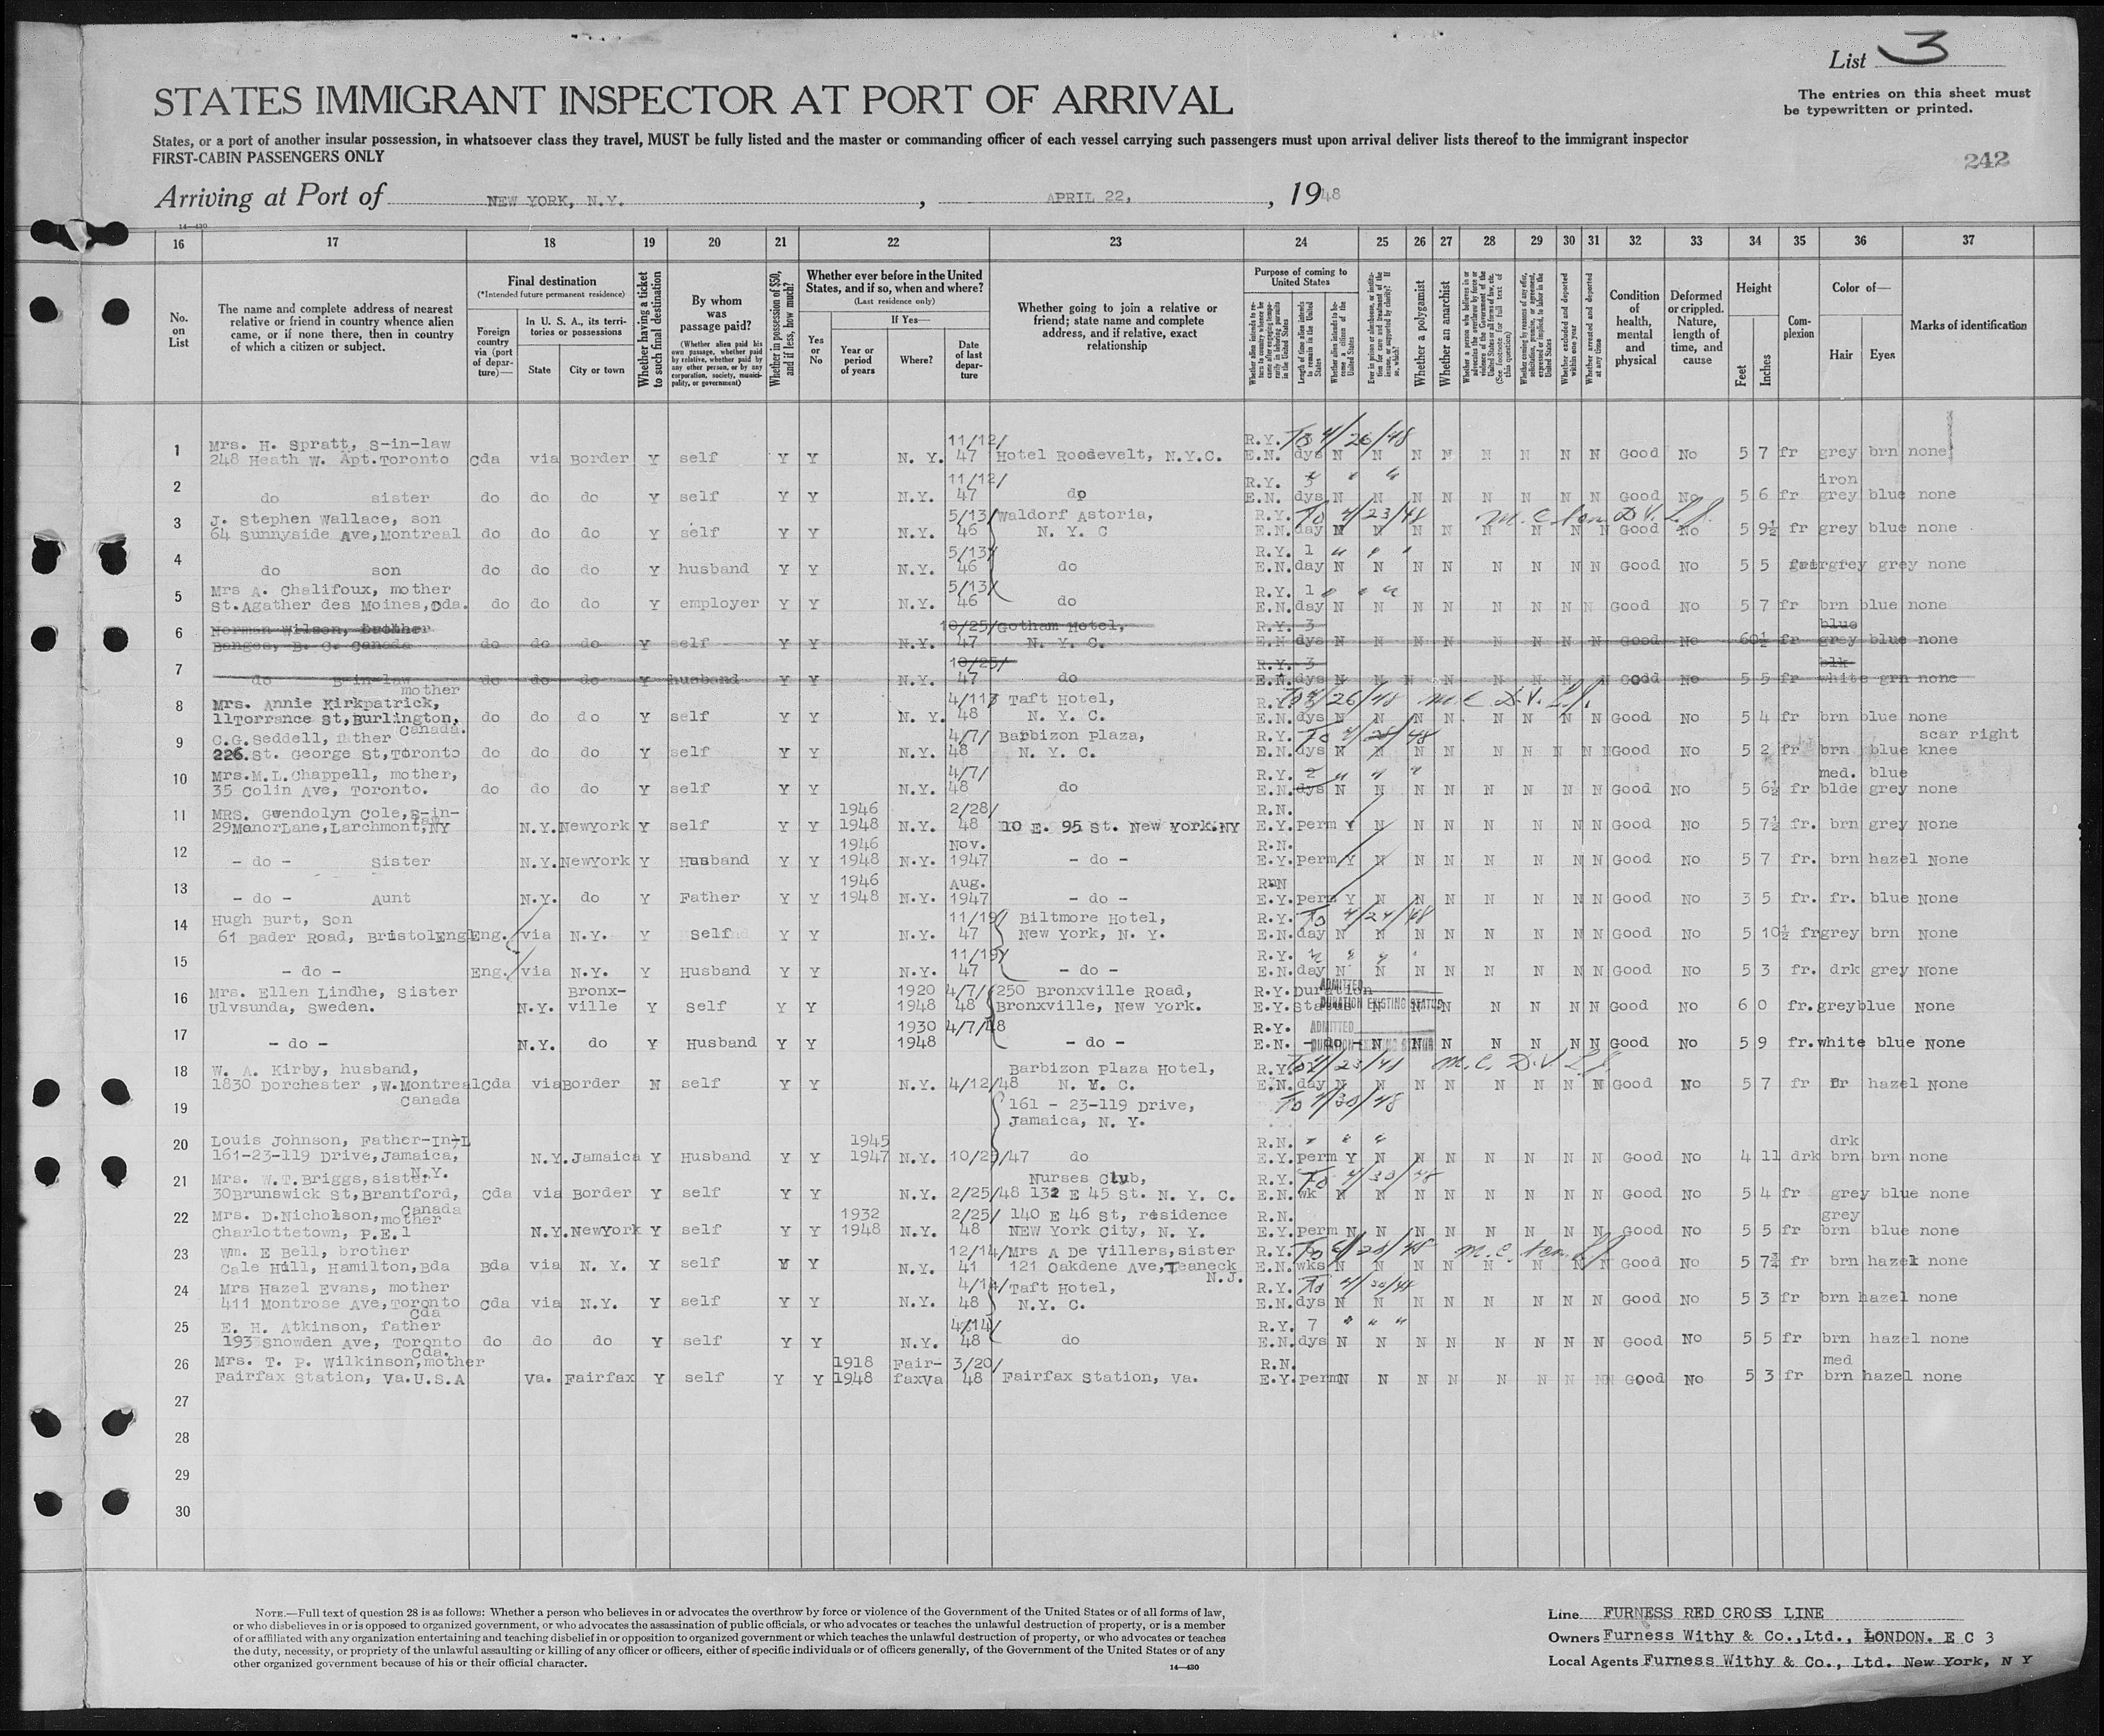 List 3
STATES IMMIGRANT INSPECTOR AT PORT OF ARRIVAL
The entries on this sheet must
be typewritten or printed.
States, or a port of another insular possession, in whatsoever class they travel, MUST be fully listed and the master or commanding officer of each vessel carrying such passengers must upon arrival deliver lists thereof to the immigrant inspector
FIRST-CABIN PASSENGERS ONLY
242
Arriving at Port of NEW YORK, N.Y. , APRIL 22, , 1948
14—430
16 17 18 19 20 21 22 23 24 25 26 27 28 29 30 31 32 33 34 35 36 37
No. on List
The name and complete address of nearest relative or friend in country whence alien came, or if none there, then in country of which a citizen or subject.
Final destination
(*Intended future permanent residence)
Foreign country via (port of departure)—
In U. S. A., its territories or possessions
State
City or town
Whether having a ticket to such final destination
By whom was passage paid?
(Whether alien paid his own passage, whether paid by relative, whether paid by any other person, or by any corporation, society, municipality, or government)
Whether in possession of $50, and if less, how much?
Whether ever before in the United States, and if so, when and where?
(Last residence only)
Yes or No
If Yes—
Year or period of years
Where?
Date of last departure
Whether going to join a relative or friend; state name and complete address, and if relative, exact relationship
Purpose of coming to United States
Length of time alien intends to remain in the United States
Whether alien intends to become a citizen of the United States
Whether a polygamist
Whether an anarchist
Whether excluded and deported within one year
Whether arrested and deported at any time
Condition of health, mental and physical
Deformed or crippled. Nature, length of time, and cause
Height
Feet
Inches
Complexion
Color of—
Hair
Eyes
Marks of identification
1 Mrs. H. Spratt, S-in-law 11/12/ R.Y. To 4/26/48
248 Heath W. Apt.Toronto Cda via Border Y self Y Y N. Y. 47 Hotel Roosevelt, N.Y.C. E.N. dys N N N N N N N N Good No 5 7 fr grey brn none
2 11/12/ R.Y. 3 iron
do sister do do do Y self Y Y N.Y. 47 do E.N. dys N N N N N N N N Good No 5 6 fr grey blue none
3 J. Stephen Wallace, son 5/13/ Waldorf Astoria, R.Y. To 4/23/48
64 Sunnyside Ave,Montreal do do do Y self Y Y N.Y. 46 N. Y. C E.N. day N N N N N N N N Good No 5 9½ fr grey blue none
4 5/13/ R.Y. 1
do son do do do Y husband Y Y N.Y. 46 do E.N. day N N N N N N N N Good No 5 5 grey grey none
5 Mrs A. Chalifoux, mother 5/13/ R.Y. 1
St.Agather des Moines,Cda. do do do Y employer Y Y N.Y. 46 do E.N. day N N N N N N N N Good No 5 7 fr brn blue none
6 Norman Wilson, brother 10/25/ Gotham Hotel, R.Y. 3 blue
Banges, B. C. Canada do do do Y self Y Y N.Y. 47 N. Y. C. E.N. dys N N N N N N N N Good No 6 0½ fr grey blue none
7 10/25/ R.Y. 3 blk
do S-in-law do do do Y husband Y Y N.Y. 47 do E.N. dys N N N N N N N N Good No 5 5 fr white grn none
mother
8 Mrs. Annie Kirkpatrick, 4/11/ Taft Hotel, R.Y. To 4/26/48
11Torrance St,Burlington, do do do Y self Y Y N. Y. 48 N. Y. C. E.N. dys N N N N N N N N Good No 5 4 fr brn blue none
Canada.
9 C.G.Seddell, father 4/7/ Barbizon Plaza, R.Y. scar right
226.St. George St,Toronto do do do Y self Y Y N.Y. 48 N. Y. C. E.N. dys N N N N N N N N Good No 5 2 fr brn blue knee
10 Mrs.M.L.Chappell, mother, 4/7/ R.Y. 2 med. blue
35 Colin Ave, Toronto. do do do Y self Y Y N.Y. 48 do E.N. dys N N N N N N N N Good No 5 6½ fr blde grey none
11 MRS. Gwendolyn Cole,S-in-law 1946 2/28/ R.N.
29ManorLane,Larchmont,NY N.Y. NewYork Y self Y Y 1948 N.Y. 48 10 E. 95 St. New York.NY E.Y. perm Y N N N N N N N Good No 5 7½ fr. brn grey None
12 1946 Nov. R.N.
- do - Sister N.Y. NewYork Y Husband Y Y 1948 N.Y. 1947 - do - E.Y. perm Y N N N N N N N Good No 5 7 fr. brn hazel None
13 1946 Aug. R.N
- do - Aunt N.Y. do Y Father Y Y 1948 N.Y. 1947 - do - E.Y. perm Y N N N N N N N Good No 3 5 fr. fr. blue None
14 Hugh Burt, Son 11/19/ Biltmore Hotel, R.Y. To 4/24/48
61 Bader Road, BristolEngl Eng. via N.Y. Y Self Y Y N.Y. 47 New York, N. Y. E.N. day N N N N N N N N Good No 5 10½ fr grey brn None
15 11/19/ R.Y.
- do - Eng. via N.Y. Y Husband Y Y N.Y. 47 - do - E.N. day N N N N N N N N Good No 5 3 fr. drk grey None
16 Mrs. Ellen Lindhe, Sister Bronx- 1920 4/7/ 250 Bronxville Road, R.Y. Duration ADMITTED
Ulvsunda, Sweden. N.Y. ville Y Self Y Y 1948 48 Bronxville, New York. E.Y. Status DURATION EXISTING STATUS N N N N N N Good No 6 0 fr. grey blue None
17 1930 4/7/48 R.Y. ADMITTED
- do - N.Y. do Y Husband Y Y 1948 - do - E.N. - do - DURATION EXISTING STATUS N N N N N N Good No 5 9 fr. white blue None
18 W. A. Kirby, husband, Barbizon Plaza Hotel, R.Y. To 4/23/48
1830 Dorchester ,W.Montreal Cda via Border N self Y Y N.Y. 4/12/48 N. Y. C. E.N. day N N N N N N N N Good No 5 7 fr fr hazel None
Canada
19 161 - 23-119 Drive, To 4/30/48
Jamaica, N. Y.
20 Louis Johnson, Father-In-L 1945 R.N. drk
161-23-119 Drive,Jamaica, N.Y. Jamaica Y Husband Y Y 1947 N.Y. 10/25/47 do E.Y. perm Y N N N N N N N Good No 4 11 drk brn brn none
N.Y.
21 Mrs. W.T.Briggs,sister Nurses Club, R.Y. To 4/30/48
30Brunswick St,Brantford, Cda via Border Y self Y Y N.Y. 2/25/48 132 E 45 St. N. Y. C. E.N. wk N N N N N N N N Good No 5 4 fr grey blue none
Canada
22 Mrs. D.Nicholson,mother 1932 2/25/ 140 E 46 St, residence R.N. grey
Charlottetown, P.E.1 N.Y. NewYork Y self Y Y 1948 N.Y. 48 NEW York City, N. Y. E.Y. perm N N N N N N N N Good No 5 5 fr brn blue none
23 Wm. E Bell, brother 12/14/ Mrs A De Villers,sister R.Y.
Cale Hill, Hamilton,Bda Bda via N. Y. Y self Y Y N.Y. 41 121 Oakdene Ave,Teaneck E.N. wks N N N N N N N N Good No 5 7¾ fr brn hazel none
N.J.
24 Mrs Hazel Evans, mother 4/14/ Taft Hotel, R.Y.
411 Montrose Ave,Toronto Cda via N.Y. Y self Y Y N.Y. 48 N.Y. C. E.N. dys N N N N N N N N Good No 5 3 fr brn hazel none
Cda
25 E. H. Atkinson, father 4/14/ R.Y. 7
193 Snowden Ave, Toronto do do do Y self Y Y N.Y. 48 do E.N. dys N N N N N N N N Good No 5 5 fr brn hazel none
Cda.
26 Mrs. T. P. Wilkinson,mother 1918 Fair- 3/20/ R.N. med
Fairfax Station, Va.U.S.A Va. Fairfax Y self Y Y 1948 faxVa 48 Fairfax Station, Va. E.Y. perm N N N N N N N N Good No 5 3 fr brn hazel none
27
28
29
30
NOTE.—Full text of question 28 is as follows: Whether a person who believes in or advocates the overthrow by force or violence of the Government of the United States or of all forms of law,
or who disbelieves in or is opposed to organized government, or who advocates the assassination of public officials, or who advocates or teaches the unlawful destruction of property, or is a member
of or affiliated with any organization entertaining and teaching disbelief in or opposition to organized government or which teaches the unlawful destruction of property, or who advocates or teaches
the duty, necessity, or propriety of the unlawful assaulting or killing of any officer or officers, either of specific individuals or of officers generally, of the Government of the United States or of any
other organized government because of his or their official character.
14—430
Line FURNESS RED CROSS LINE
Owners Furness Withy & Co.,Ltd., LONDON. E C 3
Local Agents Furness Withy & Co., Ltd. New York, N Y